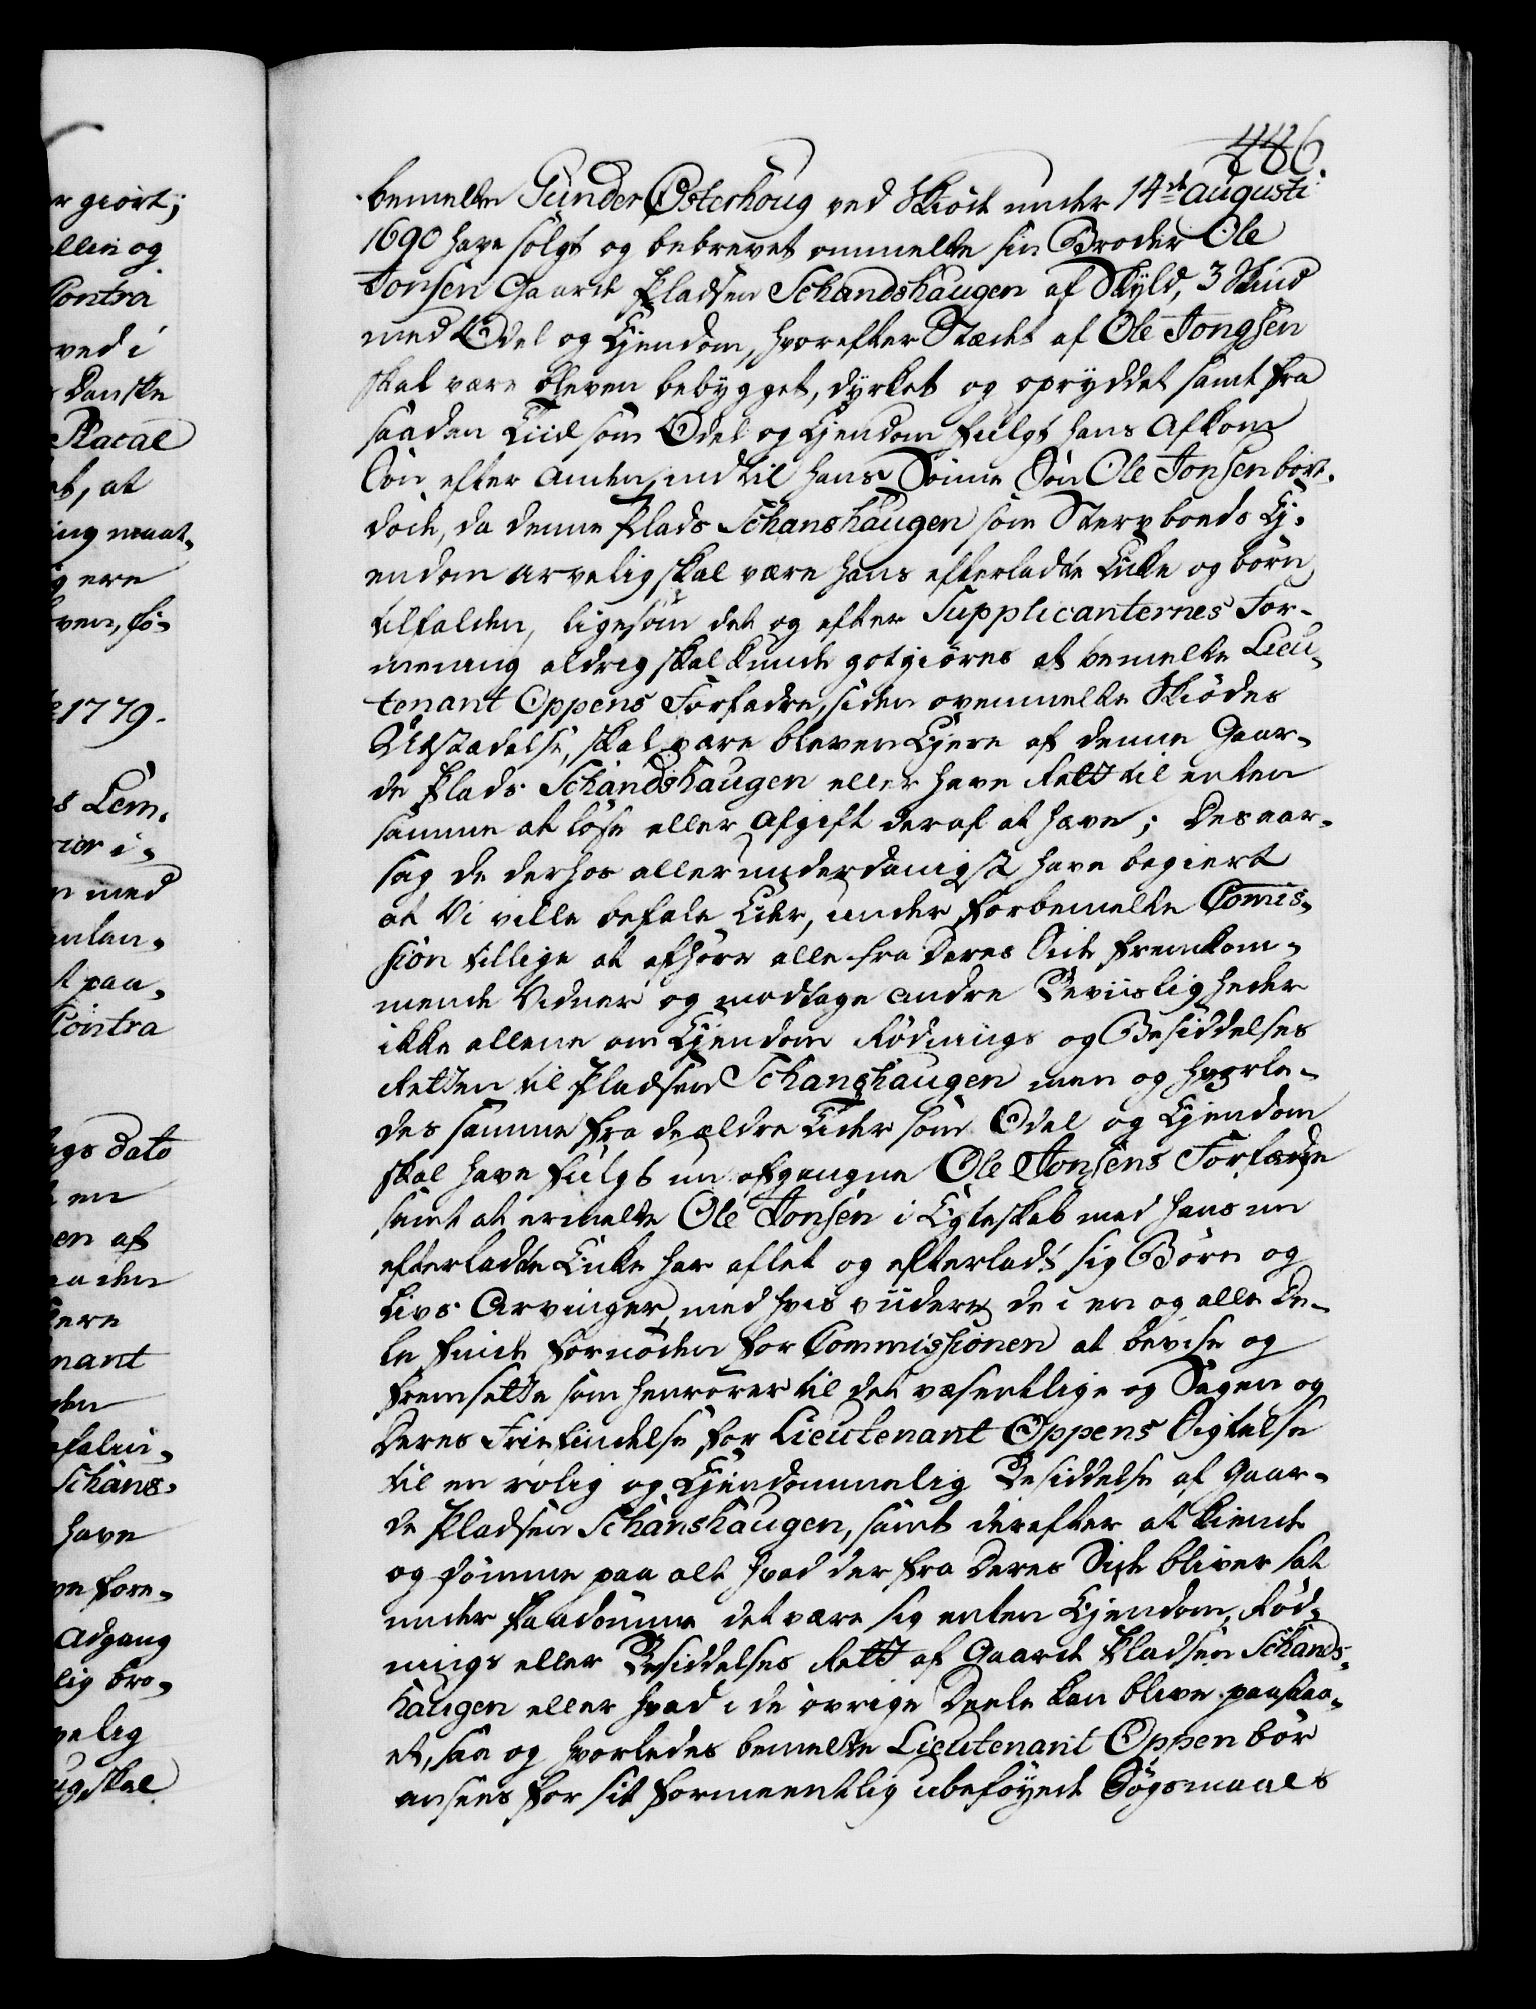 446
bemelte Gunder Østerhoug ved Skiöde under 14de augusti
1690 have solgt og bebrevet ommelte sin Broder Ole
Jonsen Gaarde Pladsen Schandshaugen af Skyld, 3 Skind
med Odel og Ejendom, hvorefter Stædet af Ole Jongsen
skal være bleven bebygget, dyrket og opryddet samt fra
saadan Tiid som Odel og Ejendom fulgt hans Afkom
Sön efter anden, indtil hans Sönne Sön Ole Jonsen bort-
döde, da denne Plads Schanshaugen som Stervboeds Ej-
endom arvelig skal være hans efterladte Enke og börn
tilfalden, ligesom det og efter Supplicanternes For-
mening aldrig skal kunde gotgiöres at bemelte Lieu-
tenant Oppens Forfædre, siden ovenmelte Skiödes
Udstædelse, skal være bleven Ejere af denne Gaar-
de Plads Schandshaugen eller have Rett til enten
samme at löse eller Afgift deraf at have; Desaar-
sag de derhos allerunderdanigst have begiert
at Vi ville befale Eder, under forbemelte Comis-
sion tillige at afhöre alle fra Deres Side fremkom-
mende Vidner og modtage andre Beviisligheder
ikke allene om Ejendom Rödnings og Besiddelses
Retten til Pladsen Schanshaugen men og hvorle-
des samme fra de ældre Tider som Odel og Ejendom
skal have fulgt nu afgangne Ole Jonsens Forfædre
samt at ermelte Ole Jonsen i Egteskab med hans nu
efterladte Enke har aflet og efterladt sig Börn og
Livs Arvinger, med hvis viidere de i en og alle De-
le finde fornöden for Commissionen at bevise og
fremsette som henrörer til det væsentlige og Sagen og
Deres Friefindelse for Lieutenant Oppens Sigtelse
til en rolig og Ejendommelig Besiddelse af Gaar-
de Pladsen Schanshaugen, samt derefter at kiende
og dömme paa alt hvad der fra Deres Side bliver sat
under Paadömme det være sig enten Ejendom, Röd-
nings eller Besiddelses Rett af Gaarde Pladsen Schands-
haugen eller hvad i de övrige Deele kan blive paastaa-
et, saa og hvorledes bemelte Lieutenant Oppen bör
ansees for sit formeentlig ubeföyede Sögsmaals
r giort;
ellin og
Contra
ved i
Danske
Placat
et, at
ing maat-
g ere
1779.
med
paa-
Contra
ugs dato
en
en af
nant
Schans-
have
ve fore-
Adgang
lig bro-
velig
skal